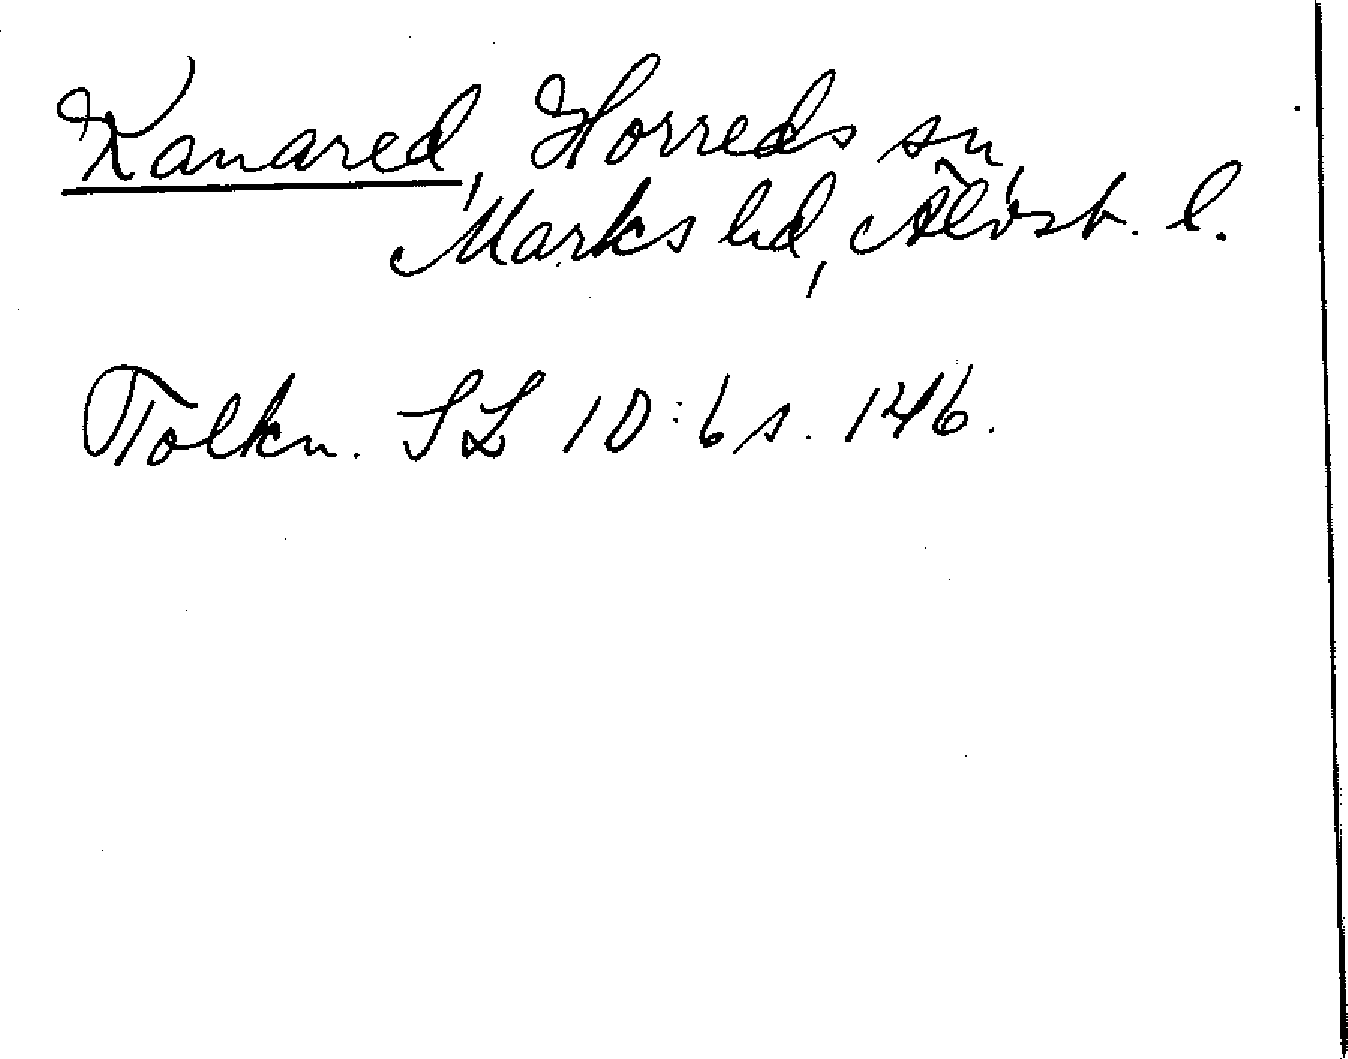 Kanared, Horreds sn,
Marks hd, Älvsb. l.
Tolkn. SL 10:6 s. 146.